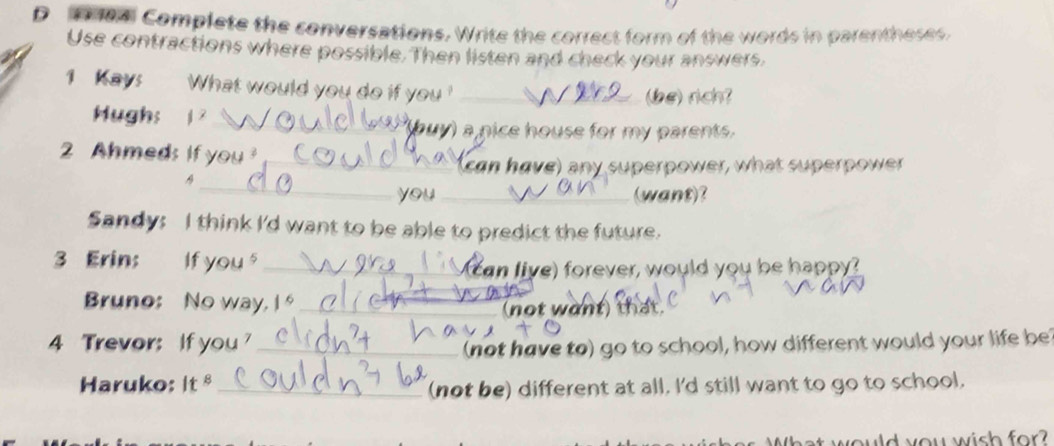 D Complete the conversations. Write the correct form of the words in parentheses.
Use contractions where possible. Then listen and check your answers.
1 Kay: What would you do if you ¹ were (be) rich?
Hugh: I ² would buy (buy) a nice house for my parents.
2 Ahmed: If you ³ could have (can have) any superpower, what superpower
⁴ do you want (want)?
Sandy: I think I'd want to be able to predict the future.
3 Erin: If you ⁵ were live (can live) forever, would you be happy?
Bruno: No way, I ⁶ didn't want (not want) that. n't
4 Trevor: If you ⁷ didn't have to (not have to) go to school, how different would your life be?
Haruko: It ⁸ couldn't be (not be) different at all. I'd still want to go to school.
What would you wish for?